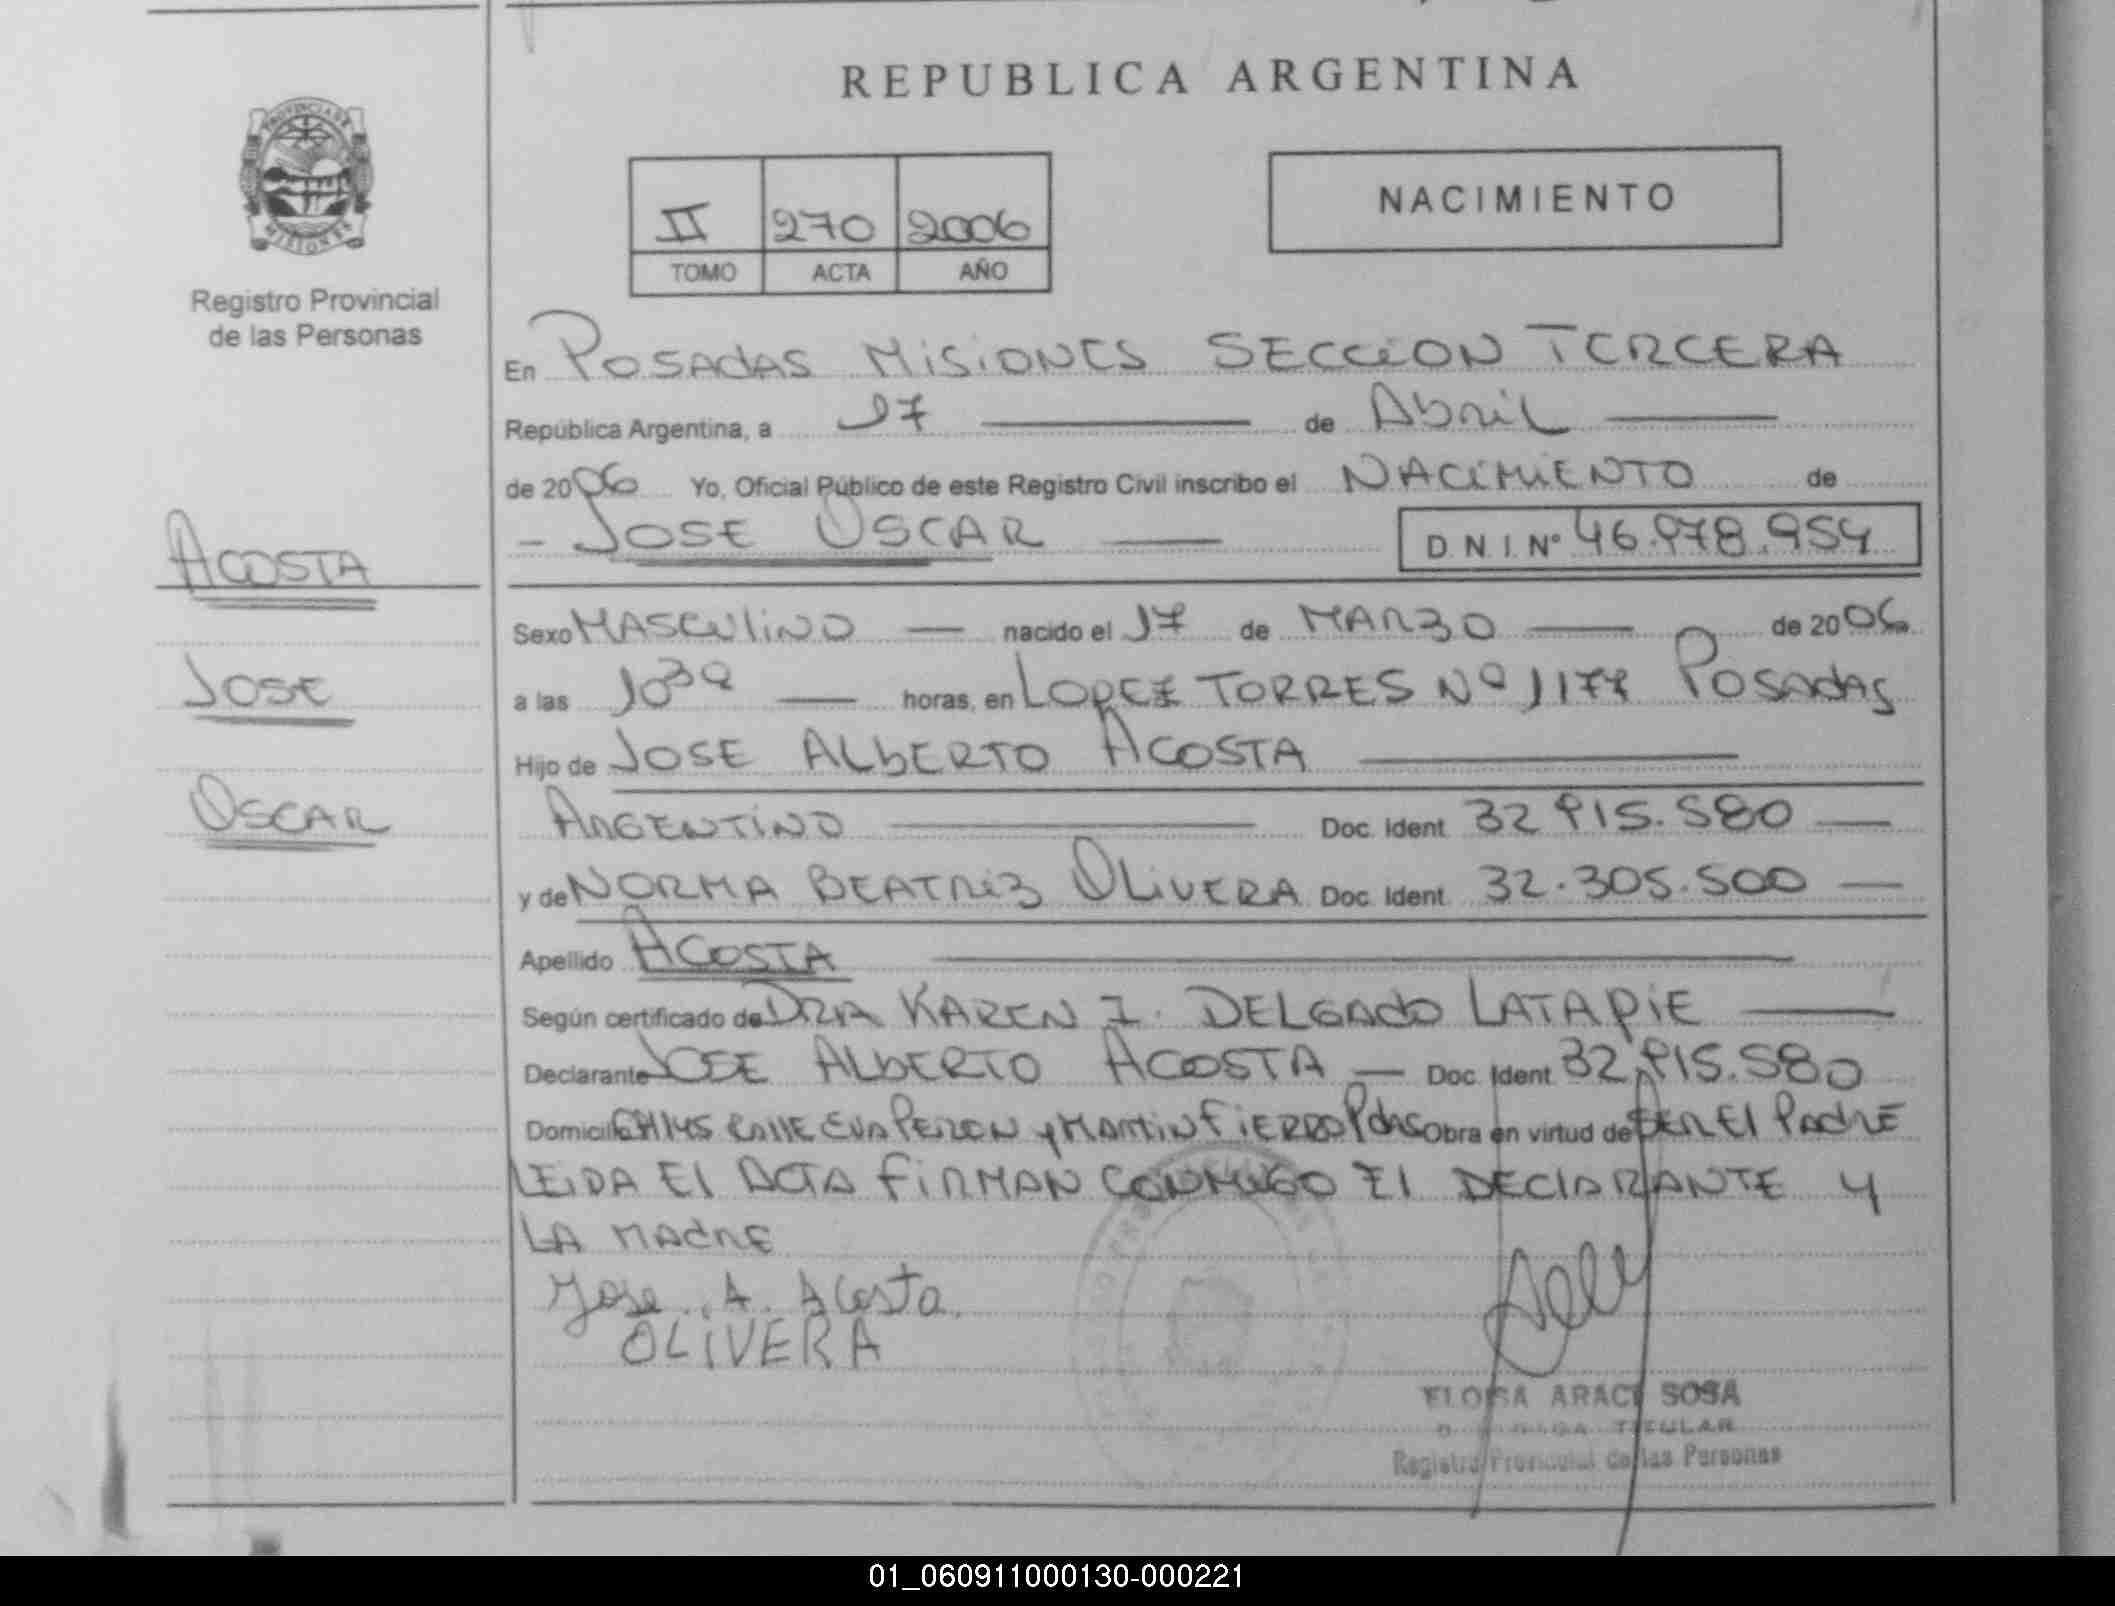 REPUBLICA ARGENTINA
PROVINCIA DE
MISIONES
Registro Provincial
de las Personas
NACIMIENTO
II 270 2006
TOMO ACTA AÑO
En POSADAS MISIONES SECCION TERCERA
República Argentina, a 17 de Abril
de 2006 Yo, Oficial Público de este Registro Civil inscribo el NACIMIENTO de
- JOSE OSCAR D.N.I. Nº 46.978.954
ACOSTA
JOSE
OSCAR
Sexo MASCULINO nacido el 17 de MARZO de 2006
a las 10 30 horas, en LOPEZ TORRES Nº 1177 POSADAS
Hijo de JOSE ALBERTO ACOSTA
ARGENTINO Doc. Ident. 32 915.580
y de NORMA BEATRIZ OLIVERA Doc. Ident. 32.305.500
Apellido ACOSTA
Según certificado de DRA KAREN I. DELGADO LATAPIE
Declarante JOSE ALBERTO ACOSTA Doc. Ident. 32.915.580
Domicilio CALLE EVA PERON y MARTIN FIERRO Pdas Obra en virtud de SER El PADRE
LEIDA El ACTA FIRMAN CONMIGO El DECLARANTE y
LA MADRE
Jose A. Acosta
OLIVERA
ELOISA ARACI SOSA
TITULAR
Registro Provincial de las Personas
01_060911000130-000221